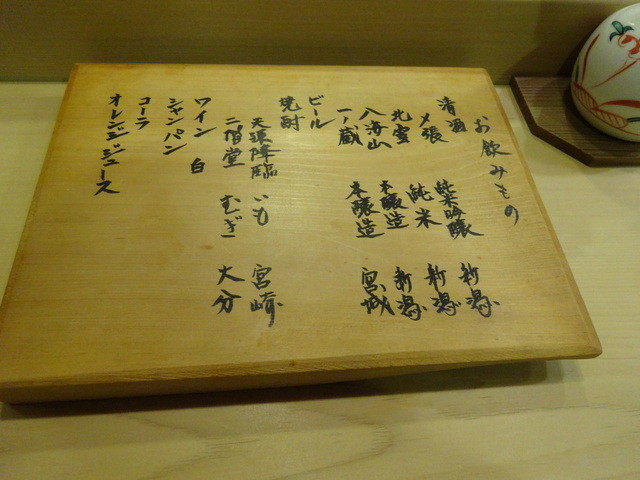 お飲みもの
清酒
〆張 純米吟醸 新潟
北雪 純米 新潟
八海山 本醸造 新潟
一ノ蔵 本醸造 宮城
ビール
焼酎
天孫降臨 いも 宮崎
二階堂 むぎ 大分
ワイン 白
シャンパン
コーラ
オレンジジュース